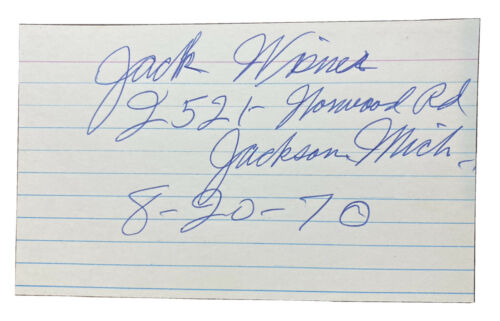 Jack Wisner
2521- Norwood Rd
Jackson, Mich.
8-20-70